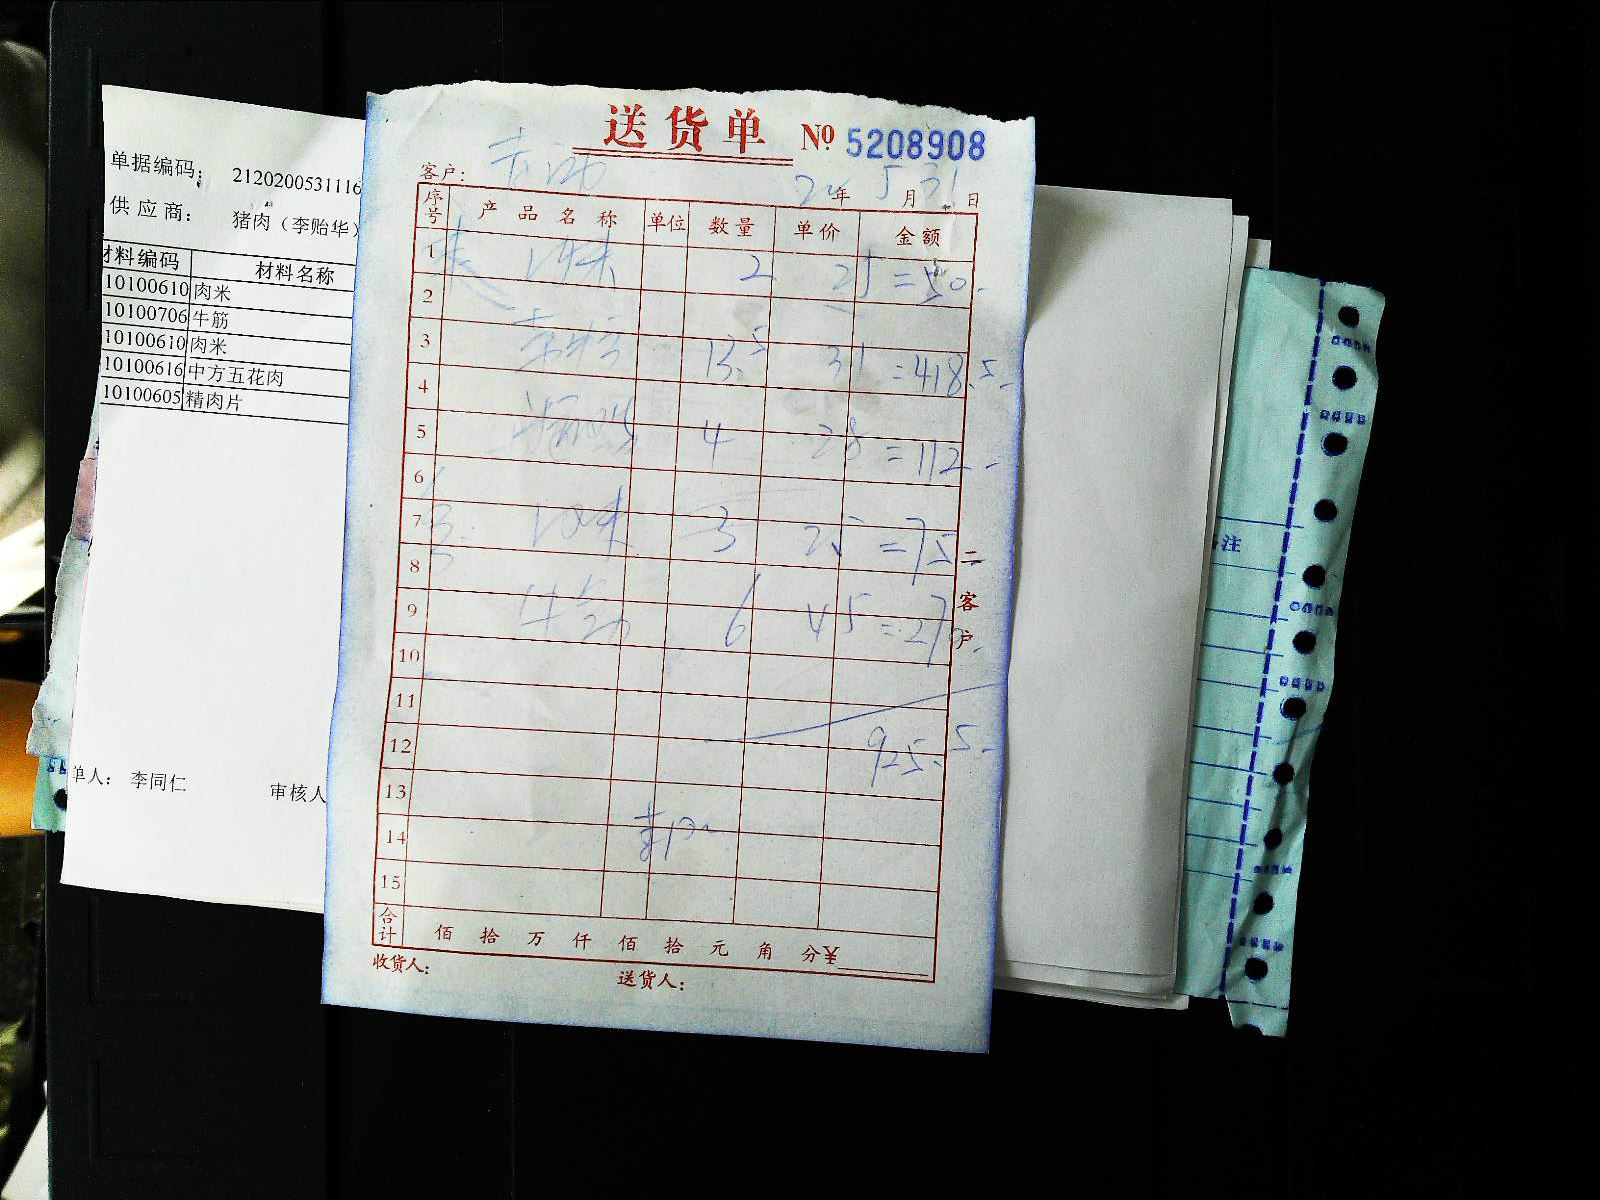 送货单 № 5208908
客户：
20年5月31日
序号 产品名称 单位 数量 单价 金额
1 肉米 2 25 =50.
2
3 13.5 31 =418.5.
4
5 4 28 =112.
6
7 肉米 3 25 =75
8
9 牛筋 6 45 =270.
10
11
12 925.5.
13
14
15
合计 佰拾万仟佰拾元角分¥
收货人： 送货人：
二客户
单据编码： 2120200531116
供应商： 猪肉（李贻华）
材料编码 材料名称
10100610 肉米
10100706 牛筋
10100610 肉米
10100616 中方五花肉
10100605 精肉片
单人： 李同仁 审核人
注